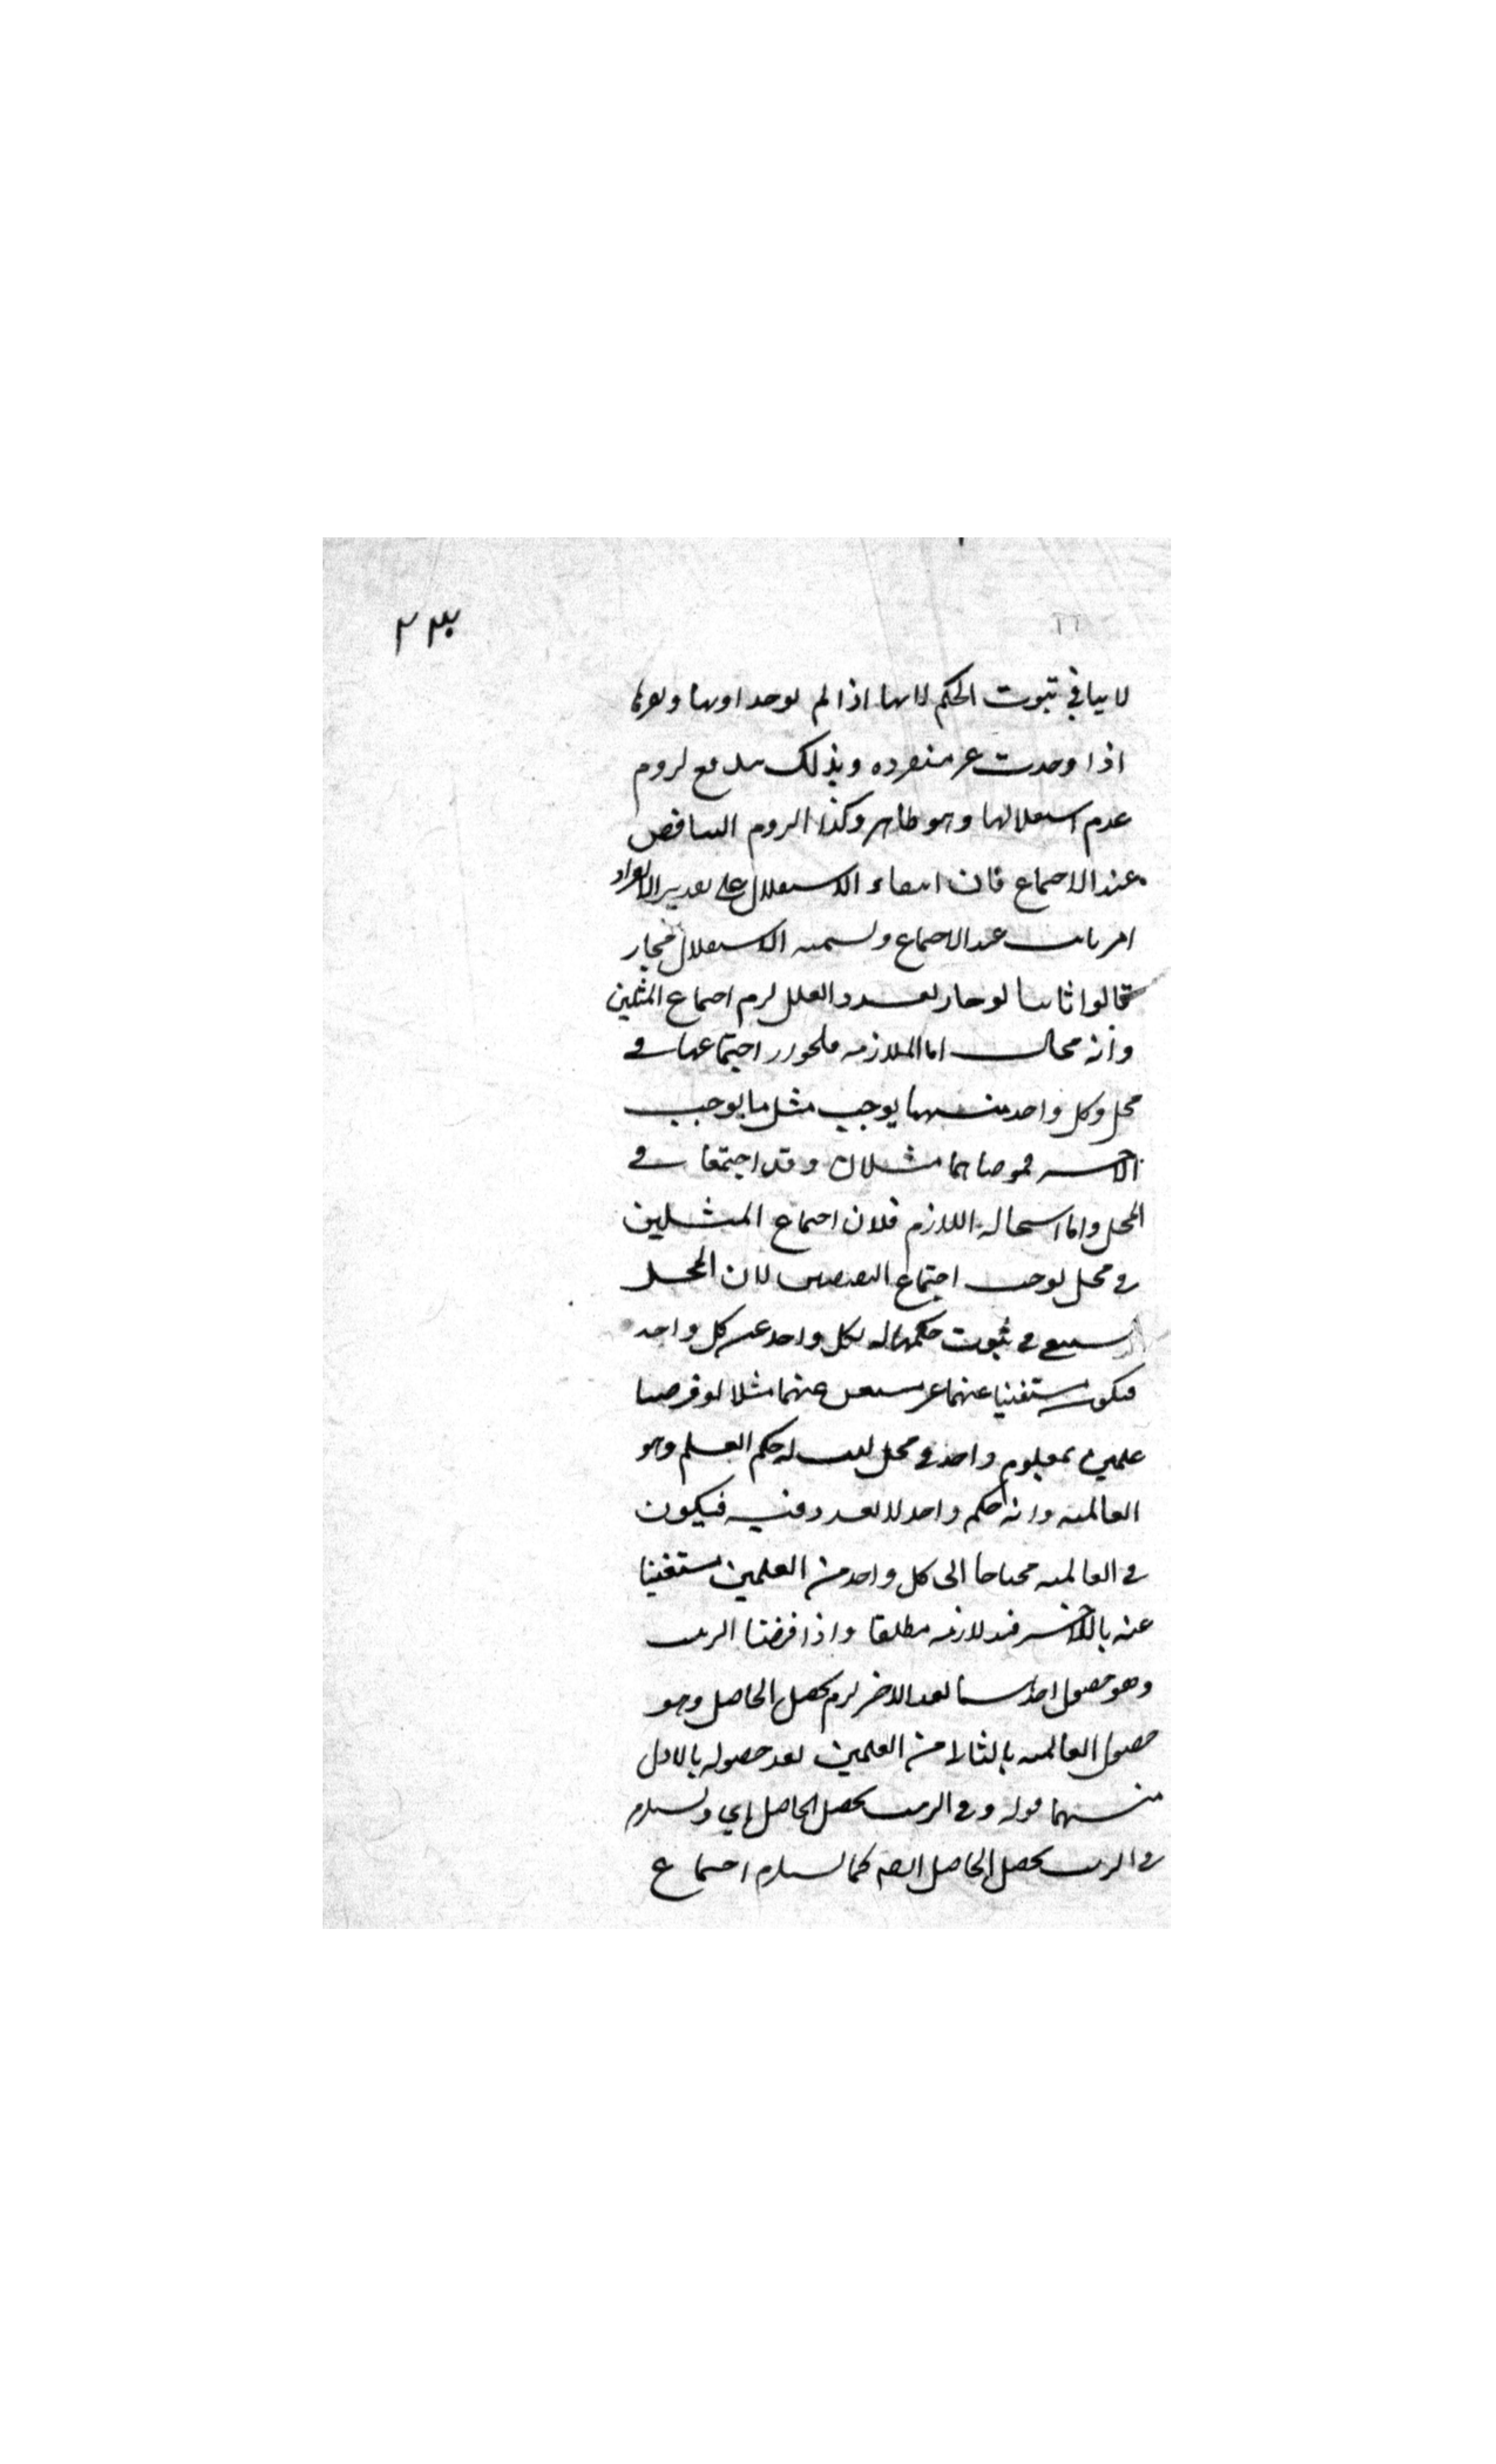 لا ينافي ثبوت الحكم لا بها اذا لم يوجد او بها وبغيرها
اذا وجدت غير منفرده وبذلك يندفع لزوم
عدم استقلالها وهو ظاهر وكذا لزوم التناقض
عند الاجتماع فان انتفاء الاستقلال على تقدير الانفراد
امر ثابت عند الاجتماع وتسميته الاستقلال مجاز
قالوا ثانيا لو جاز تعدد العلل لزم اجتماع المثلين
وانه محال اما الملازمه فلجواز اجتماعها في
محل وكل واحد منهما يوجب مثل ما يوجب
الآخر فموجباهما مثلان وقد اجتمعا في
المحل واما استحاله اللازم فلان اجتماع المثلين
في محل يوجب اجتماع النقيضين لان المحل
يستغني في ثبوت حكمهما له بكل واحد عن كل واحد
فيكون مستغنيا عنهما غير مستغن عنهما مثلا لو فرضنا
علمين بمعلوم واحد في محل ثبت له حكم العلم وهو
العالميه وانه حكم واحد لا تعدد فيه فيكون
في العالميه محتاجا الى كل واحد من العلمين مستغنيا
عنه بالآخر هذا لازمه مطلقا واذا فرضنا الترتيب
وهو حصول احدهما بعد الاخر لزم تحصيل الحاصل وهو
حصول العالميه بالثاني من العلمين بعد حصوله بالاول
منهما قوله وفي الترتيب تحصيل الحاصل اي ويستلزم
في الترتيب تحصيل الحاصل ايضا كما يستلزم اجتماع